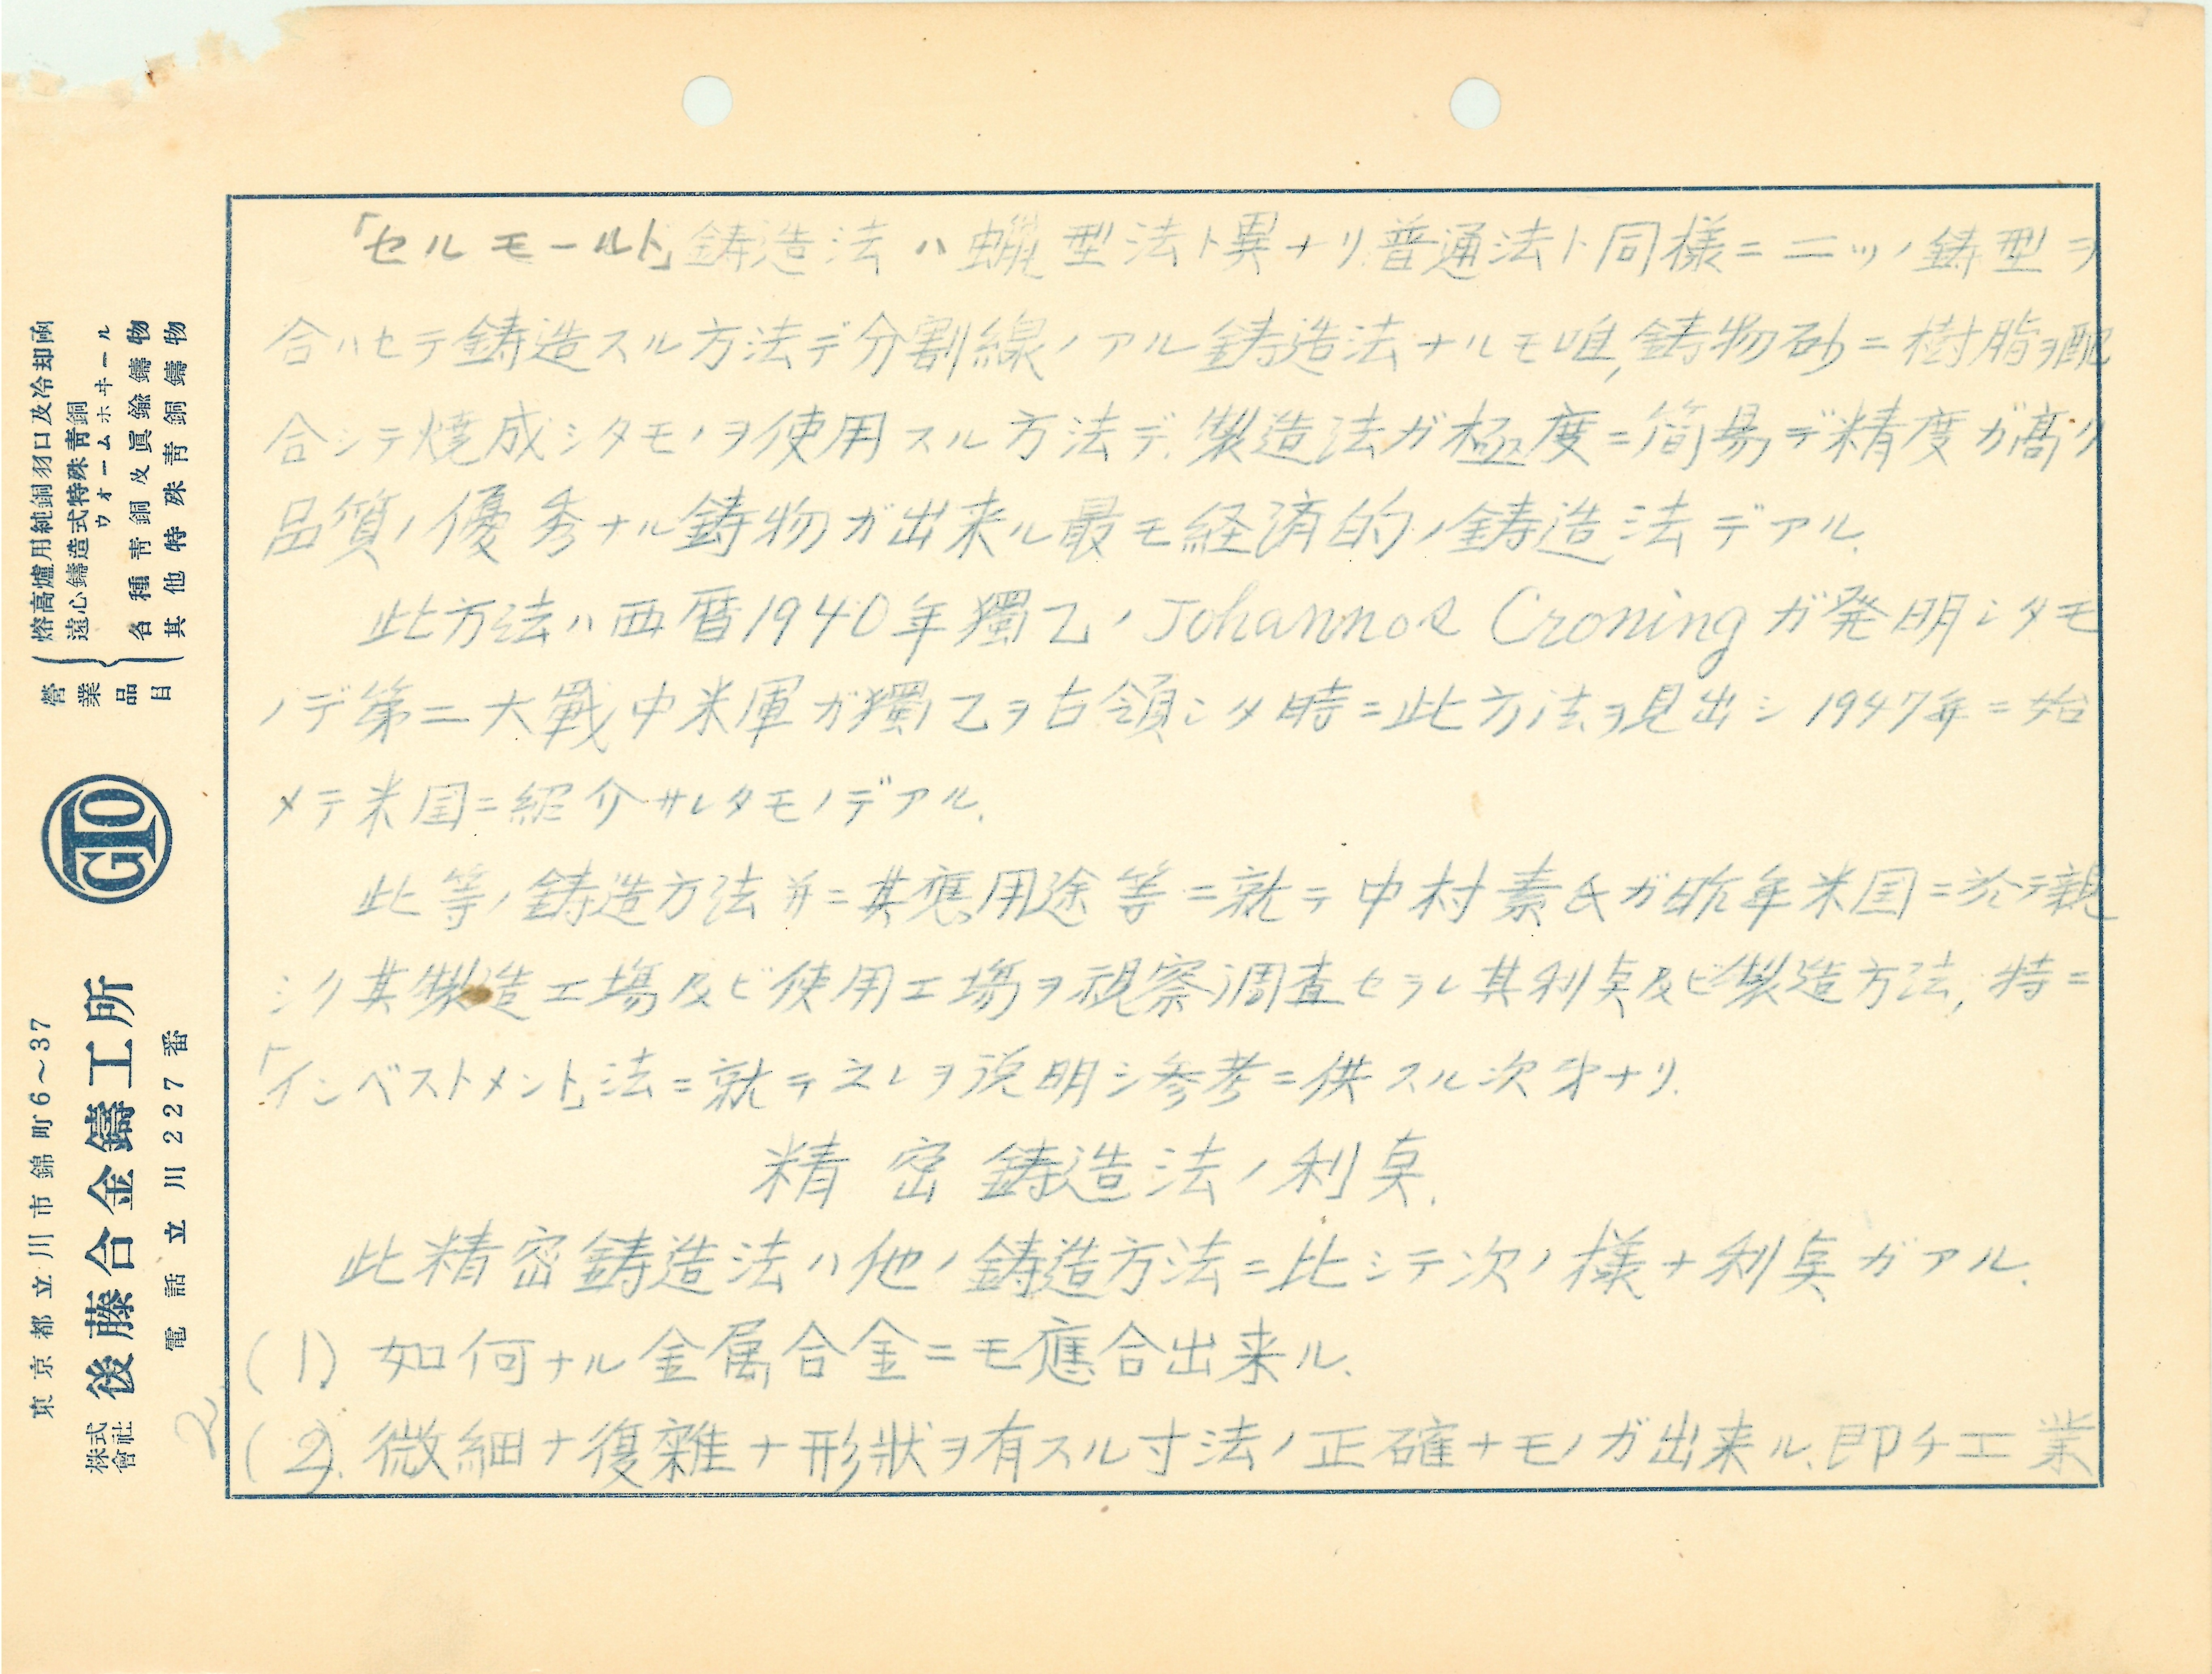 「セルモールト」鋳造法ハ蝋型法ト異ナリ普通法ト同様ニ二ツノ鋳型ヲ
合ハセテ鋳造スル方法デ分割線ノアル鋳造法ナルモ唯,鋳物砂ニ樹脂ヲ配
合シテ焼成シタモノヲ使用スル方法デ.製造法ガ極度ニ簡易デ精度ガ高ク
品質ノ優秀ナル鋳物ガ出来ル最モ経済的ノ鋳造法デアル.
此方法ハ西暦1940年獨乙ノJohannos Croningガ発明シタモ
ノデ第二大戰中米軍ガ獨乙ヲ占領シタ時ニ此方法ヲ見出シ1947年ニ始
メテ米国ニ紹介サレタモノデアル.
此等ノ鋳造方法并ニ其應用途等ニ就テ中村素氏ガ昨年米国ニ於テ親
シク其製造工場及ビ使用工場ヲ視察調査セラレ其利点及ビ製造方法,特ニ
「インベストメント」法ニ就テ之レヲ説明シ参考ニ供スル次第ナリ.
精密鋳造法ノ利点.
此精密鋳造法ハ他ノ鋳造方法ニ比シテ次ノ様ナ利点ガアル.
(1) 如何ナル金属合金ニモ應合出来ル.
(2). 微細ナ復雑ナ形狀ヲ有スル寸法ノ正確ナモノガ出来ル.即チ工業
2.
營業品目
熔高爐用純銅羽口及冷却函
遠心鑄造式特殊靑銅
ウォームホヰール
各種靑銅及眞鍮鑄物
其他特殊靑銅鑄物
GTO
東京都立川市錦町6～37
株式會社 後藤合金鑄工所
電話 立川227番